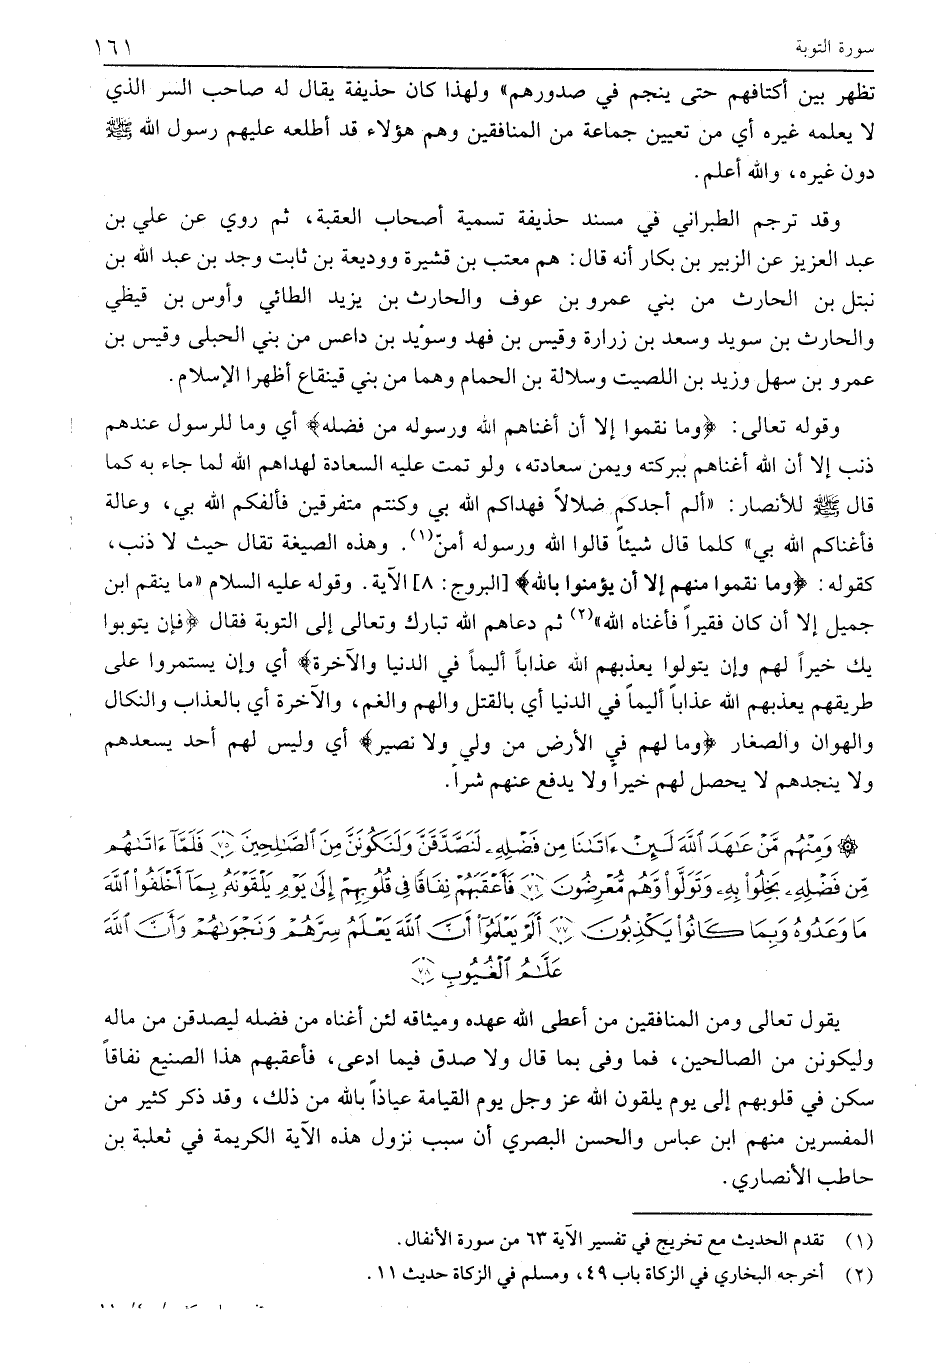 سورة التوبة ١٦١
تظهر بين أكتافهم حتى ينجم في صدورهم» ولهذا كان حذيفة يقال له صاحب السر الذي
لا يعلمه غيره أي من تعيين جماعة من المنافقين وهم هؤلاء قد أطلعه عليهم رسول الله ﷺ
دون غيره، والله أعلم.
وقد ترجم الطبراني في مسند حذيفة تسمية أصحاب العقبة، ثم روي عن علي بن
عبد العزيز عن الزبير بن بكار أنه قال: هم معتب بن قشيرة ووديعة بن ثابت وجد بن عبد الله بن
نبتل بن الحارث من بني عمرو بن عوف والحارث بن يزيد الطائي وأوس بن قيظي
والحارث بن سويد وسعد بن زرارة وقيس بن فهد وسوُيد بن داعس من بني الحبلى وقيس بن
عمرو بن سهل وزيد بن اللصيت وسلالة بن الحمام وهما من بني قينقاع أظهرا الإسلام.
وقوله تعالى: ﴿وما نقموا إلا أن أغناهم الله ورسوله من فضله﴾ أي وما للرسول عندهم
ذنب إلا أن الله أغناهم ببركته ويمن سعادته، ولو تمت عليه السعادة لهداهم الله لما جاء به كما
قال ﷺ للأنصار: «ألم أجدكم ضلالاً فهداكم الله بي وكنتم متفرقين فألفكم الله بي، وعالة
فأغناكم الله بي» كلما قال شيئاً قالوا الله ورسوله أمنّ(١). وهذه الصيغة تقال حيث لا ذنب،
كقوله: ﴿وما نقموا منهم إلا أن يؤمنوا بالله﴾ [البروج: ٨] الآية. وقوله عليه السلام «ما ينقم ابن
جميل إلا أن كان فقيراً فأغناه الله»(٢) ثم دعاهم الله تبارك وتعالى إلى التوبة فقال ﴿فإن يتوبوا
يك خيراً لهم وإن يتولوا يعذبهم الله عذاباً أليماً في الدنيا والآخرة﴾ أي وإن يستمروا على
طريقهم يعذبهم الله عذاباً أليماً في الدنيا أي بالقتل والهم والغم، والآخرة أي بالعذاب والنكال
والهوان والصغار ﴿وما لهم في الأرض من ولي ولا نصير﴾ أي وليس لهم أحد يسعدهم
ولا ينجدهم لا يحصل لهم خيراً ولا يدفع عنهم شراً.
۞ وَمِنْهُم مَّنْ عَٰهَدَ ٱللَّهَ لَئِنْ ءَاتَىٰنَا مِن فَضْلِهِۦ لَنَصَّدَّقَنَّ وَلَنَكُونَنَّ مِنَ ٱلصَّٰلِحِينَ ﴿٧٥﴾ فَلَمَّآ ءَاتَىٰهُم
مِّن فَضْلِهِۦ بَخِلُوا۟ بِهِۦ وَتَوَلَّوا۟ وَّهُم مُّعْرِضُونَ ﴿٧٦﴾ فَأَعْقَبَهُمْ نِفَاقًا فِى قُلُوبِهِمْ إِلَىٰ يَوْمِ يَلْقَوْنَهُۥ بِمَآ أَخْلَفُوا۟ ٱللَّهَ
مَا وَعَدُوهُ وَبِمَا كَانُوا۟ يَكْذِبُونَ ﴿٧٧﴾ أَلَمْ يَعْلَمُوٓا۟ أَنَّ ٱللَّهَ يَعْلَمُ سِرَّهُمْ وَنَجْوَىٰهُمْ وَأَنَّ ٱللَّهَ
عَلَّٰمُ ٱلْغُيُوبِ ﴿٧٨﴾
يقول تعالى ومن المنافقين من أعطى الله عهده وميثاقه لئن أغناه من فضله ليصدقن من ماله
وليكونن من الصالحين، فما وفى بما قال ولا صدق فيما ادعى، فأعقبهم هذا الصنيع نفاقاً
سكن في قلوبهم إلى يوم يلقون الله عز وجل يوم القيامة عياذاً بالله من ذلك، وقد ذكر كثير من
المفسرين منهم ابن عباس والحسن البصري أن سبب نزول هذه الآية الكريمة في ثعلبة بن
حاطب الأنصاري.
(١) تقدم الحديث مع تخريج في تفسير الآية ٦٣ من سورة الأنفال.
(٢) أخرجه البخاري في الزكاة باب ٤٩، ومسلم في الزكاة حديث ١١.